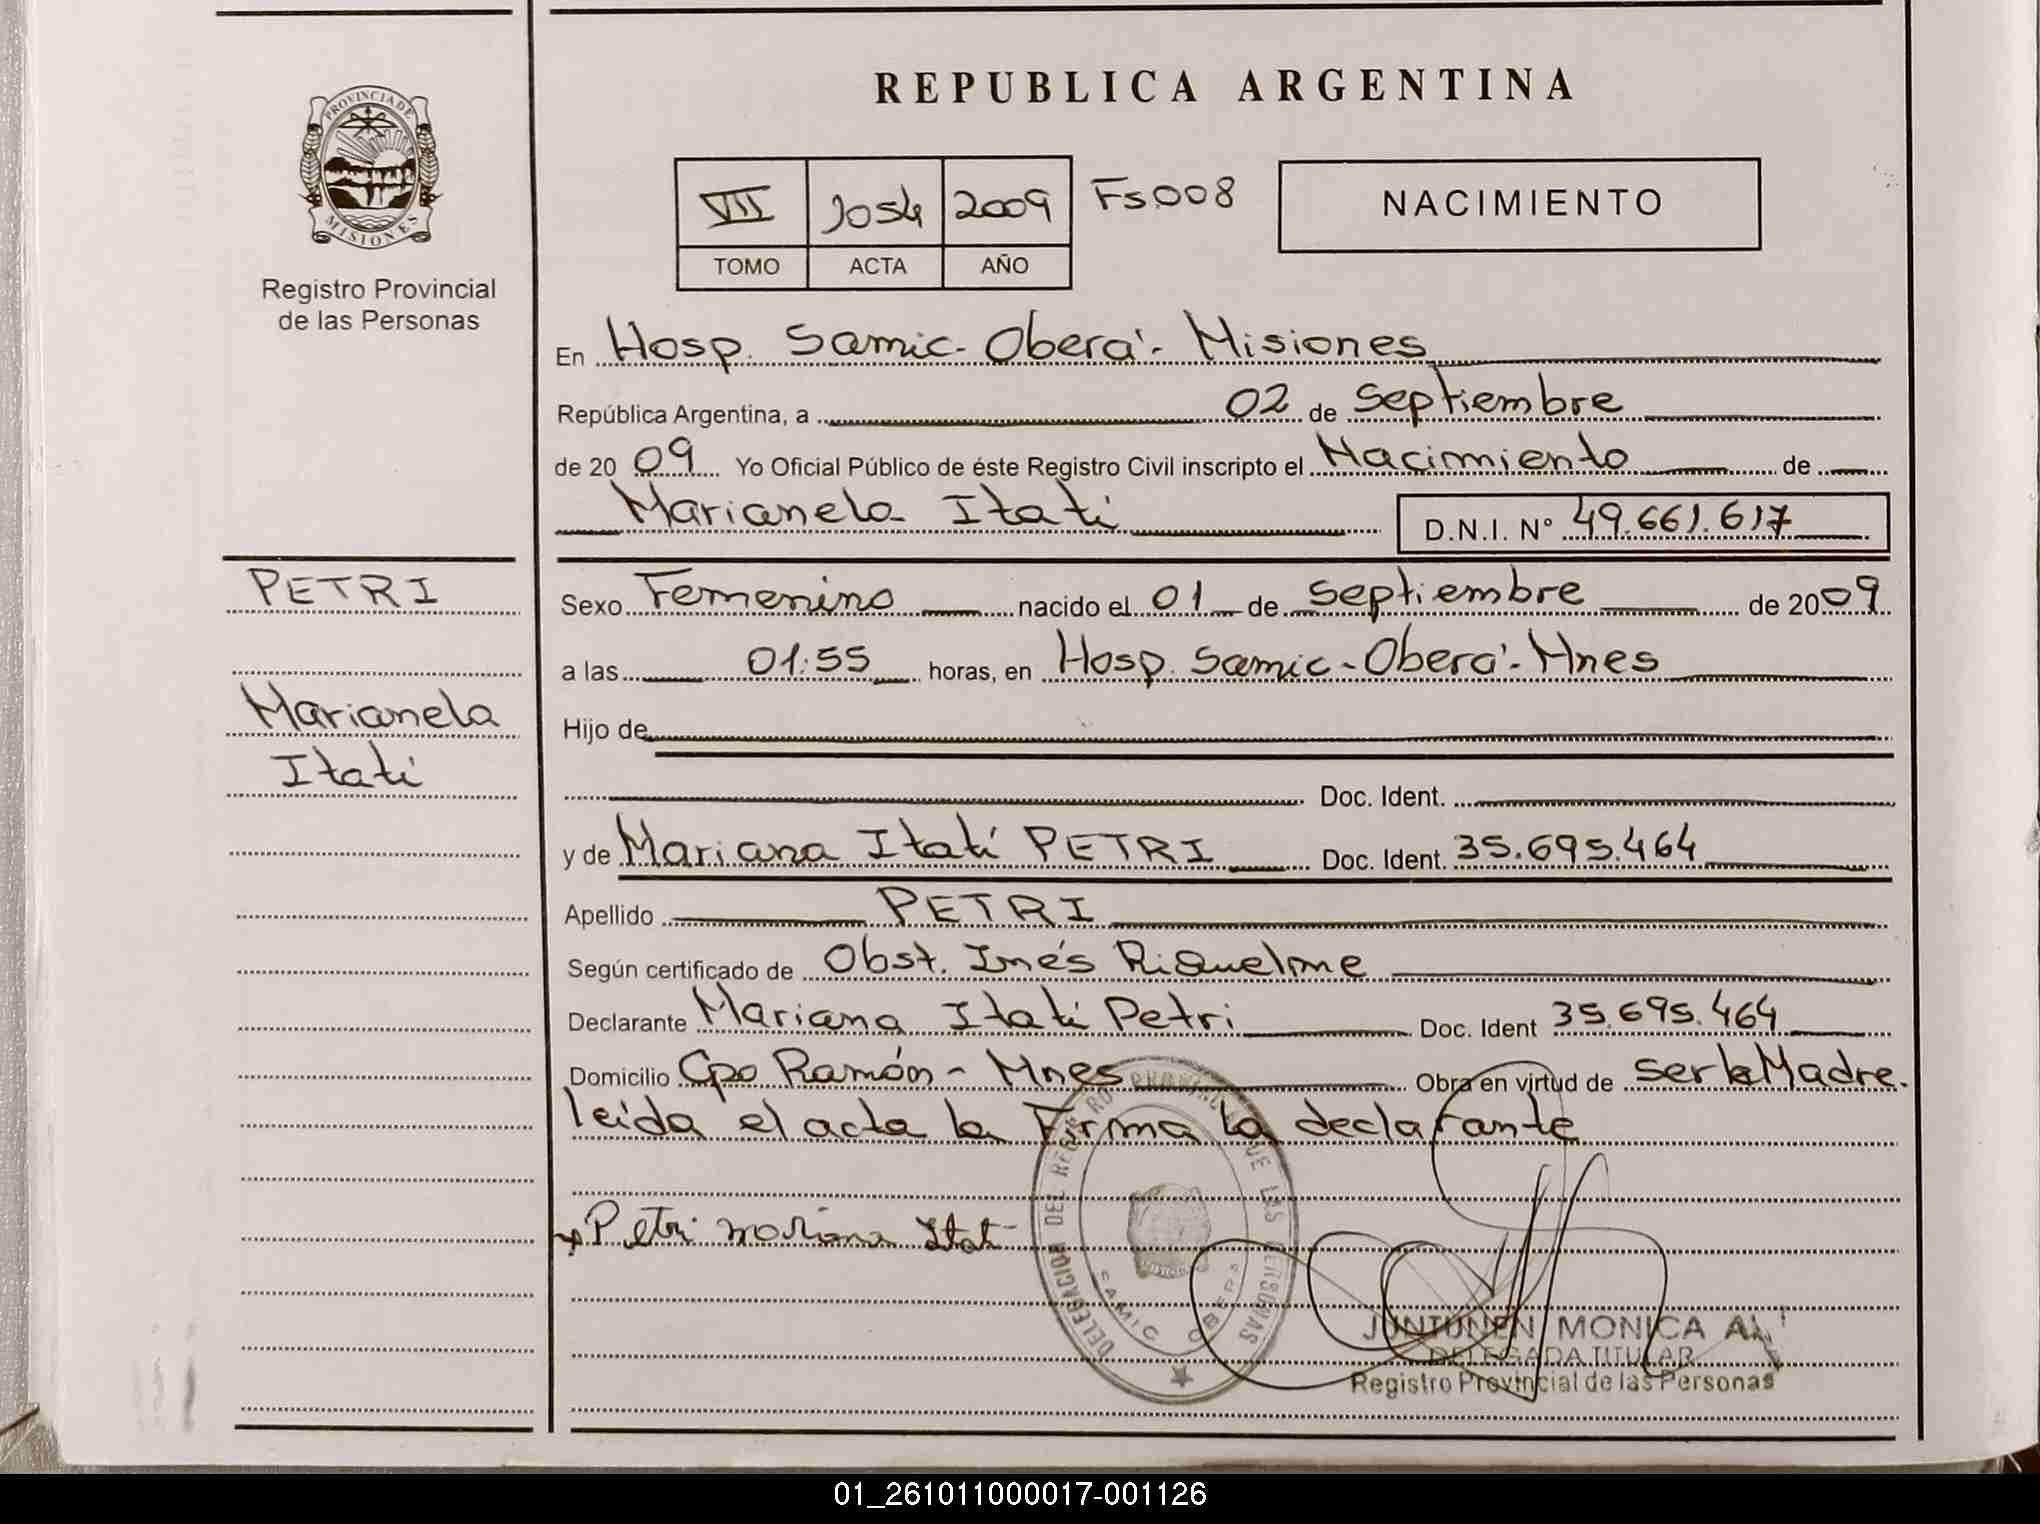 REPUBLICA ARGENTINA
PROVINCIA DE
MISIONES
Registro Provincial
de las Personas
VII 1054 2009 Fs008
TOMO ACTA AÑO
NACIMIENTO
En Hosp. Samic- Oberá- Misiones
República Argentina, a 02 de Septiembre
de 2009 Yo Oficial Público de éste Registro Civil inscripto el Nacimiento de
Marianela Itatí D.N.I. N° 49.661.617
PETRI
Marianela
Itatí
Sexo Femenino nacido el 01 de Septiembre de 2009
a las 01:55 horas, en Hosp. Samic-Oberá-Mnes
Hijo de
Doc. Ident.
y de Mariana Itatí PETRI Doc. Ident. 35.695.464
Apellido PETRI
Según certificado de Obst. Inés Riquelme
Declarante Mariana Itatí Petri Doc. Ident 35.695.464
Domicilio Cpo Ramón- Mnes Obra en virtud de ser la Madre.
leida el acta la Firma la declarante
Petri Mariana Itatí
DELEGACION DEL REGISTRO PROVINCIAL DE LAS PERSONAS
SAMIC OBERA
MISIONES
JUNTUNEN MONICA
DELEGADA TITULAR
Registro Provincial de las Personas
01_261011000017-001126